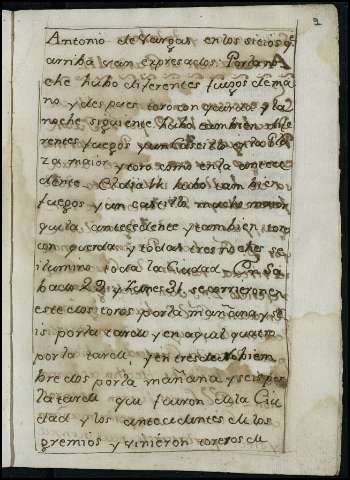 2
Antonio de Vargas en los sitios q͏̃
arriba van expresados. Por la no
che hubo diferentes fuegos de ma
no, y despues toro con querda y la
noche siguiente hubo tambien dife
rentes fuegos y un castillo en la Pla
za maior y toro como en la antece
dente. El dia hubo tambien
fuegos y un castillo mucho maior
que la antecedente y tambien toro
con querda, y todas tres noches se
ilumino toda la Ciudad. Sa
bado 29 y Lunes 31 se corrieron en
este dos toros por la mañana y se
is por la tarde y en aquel quatro
por la tarde, y en tres de Nobiem
bre dos por la mañana y seis por
la tarde que fueron de la Ciu
dad y los antecedentes de los
gremios y vinieron toreros de